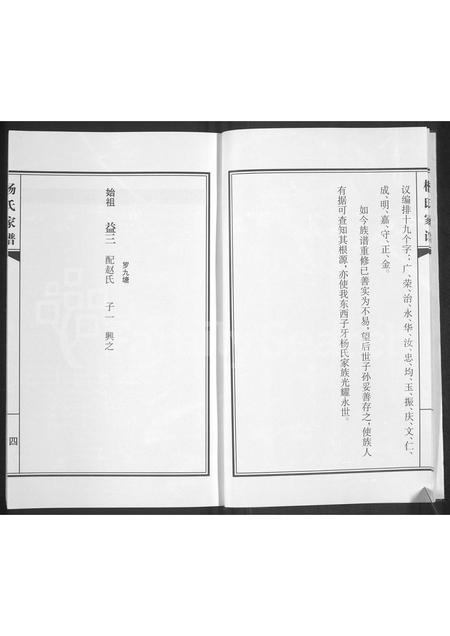 杨氏家谱
议编排十九个字：广、荣、治、永、华、汝、忠、均、玉、振、庆、文、仁、
成、明、嘉、守、正、金。
如今族谱重修已善实为不易，望后世子孙妥善存之，使族人
有据可查知其根源，亦使我东西子牙杨氏家族光耀永世。
罗九塘
始祖 益三 配赵氏 子一 興之
杨氏家谱
四